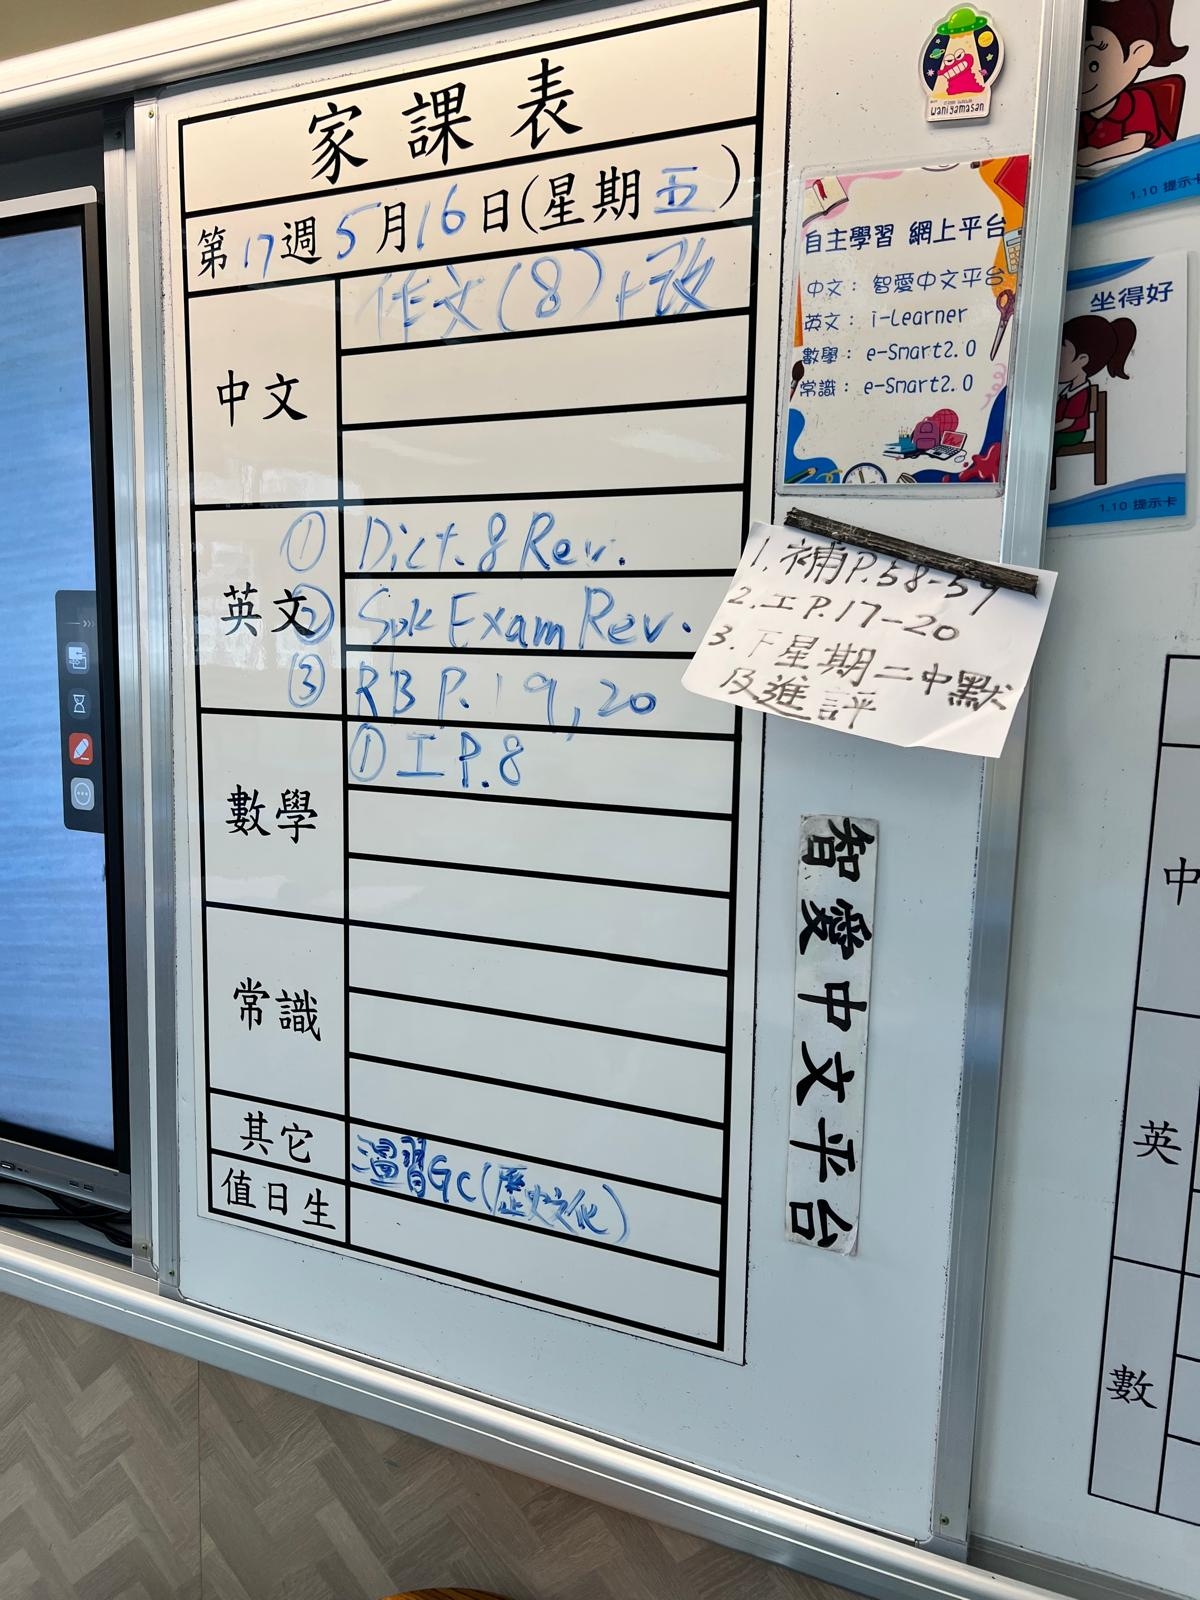 家課表
第17週5月16日(星期五)
中文
作文(8)+改
英文
① Dict. 8 Rev.
② Spk Exam Rev.
③ RB P.19,20
數學
① 工 P.8
常識
其它
溫習GC(歷史文化)
值日生
wanigamasan
自主學習 網上平台
中文： 智愛中文平台
英文： i-Learner
數學： e-Smart2.0
常識： e-Smart2.0
1. 補P.58-59
2. 工P.17-20
3. 下星期二中默
及進評
智愛中文平台
1.10 提示卡
坐得好
1.10 提示卡
中
英
數